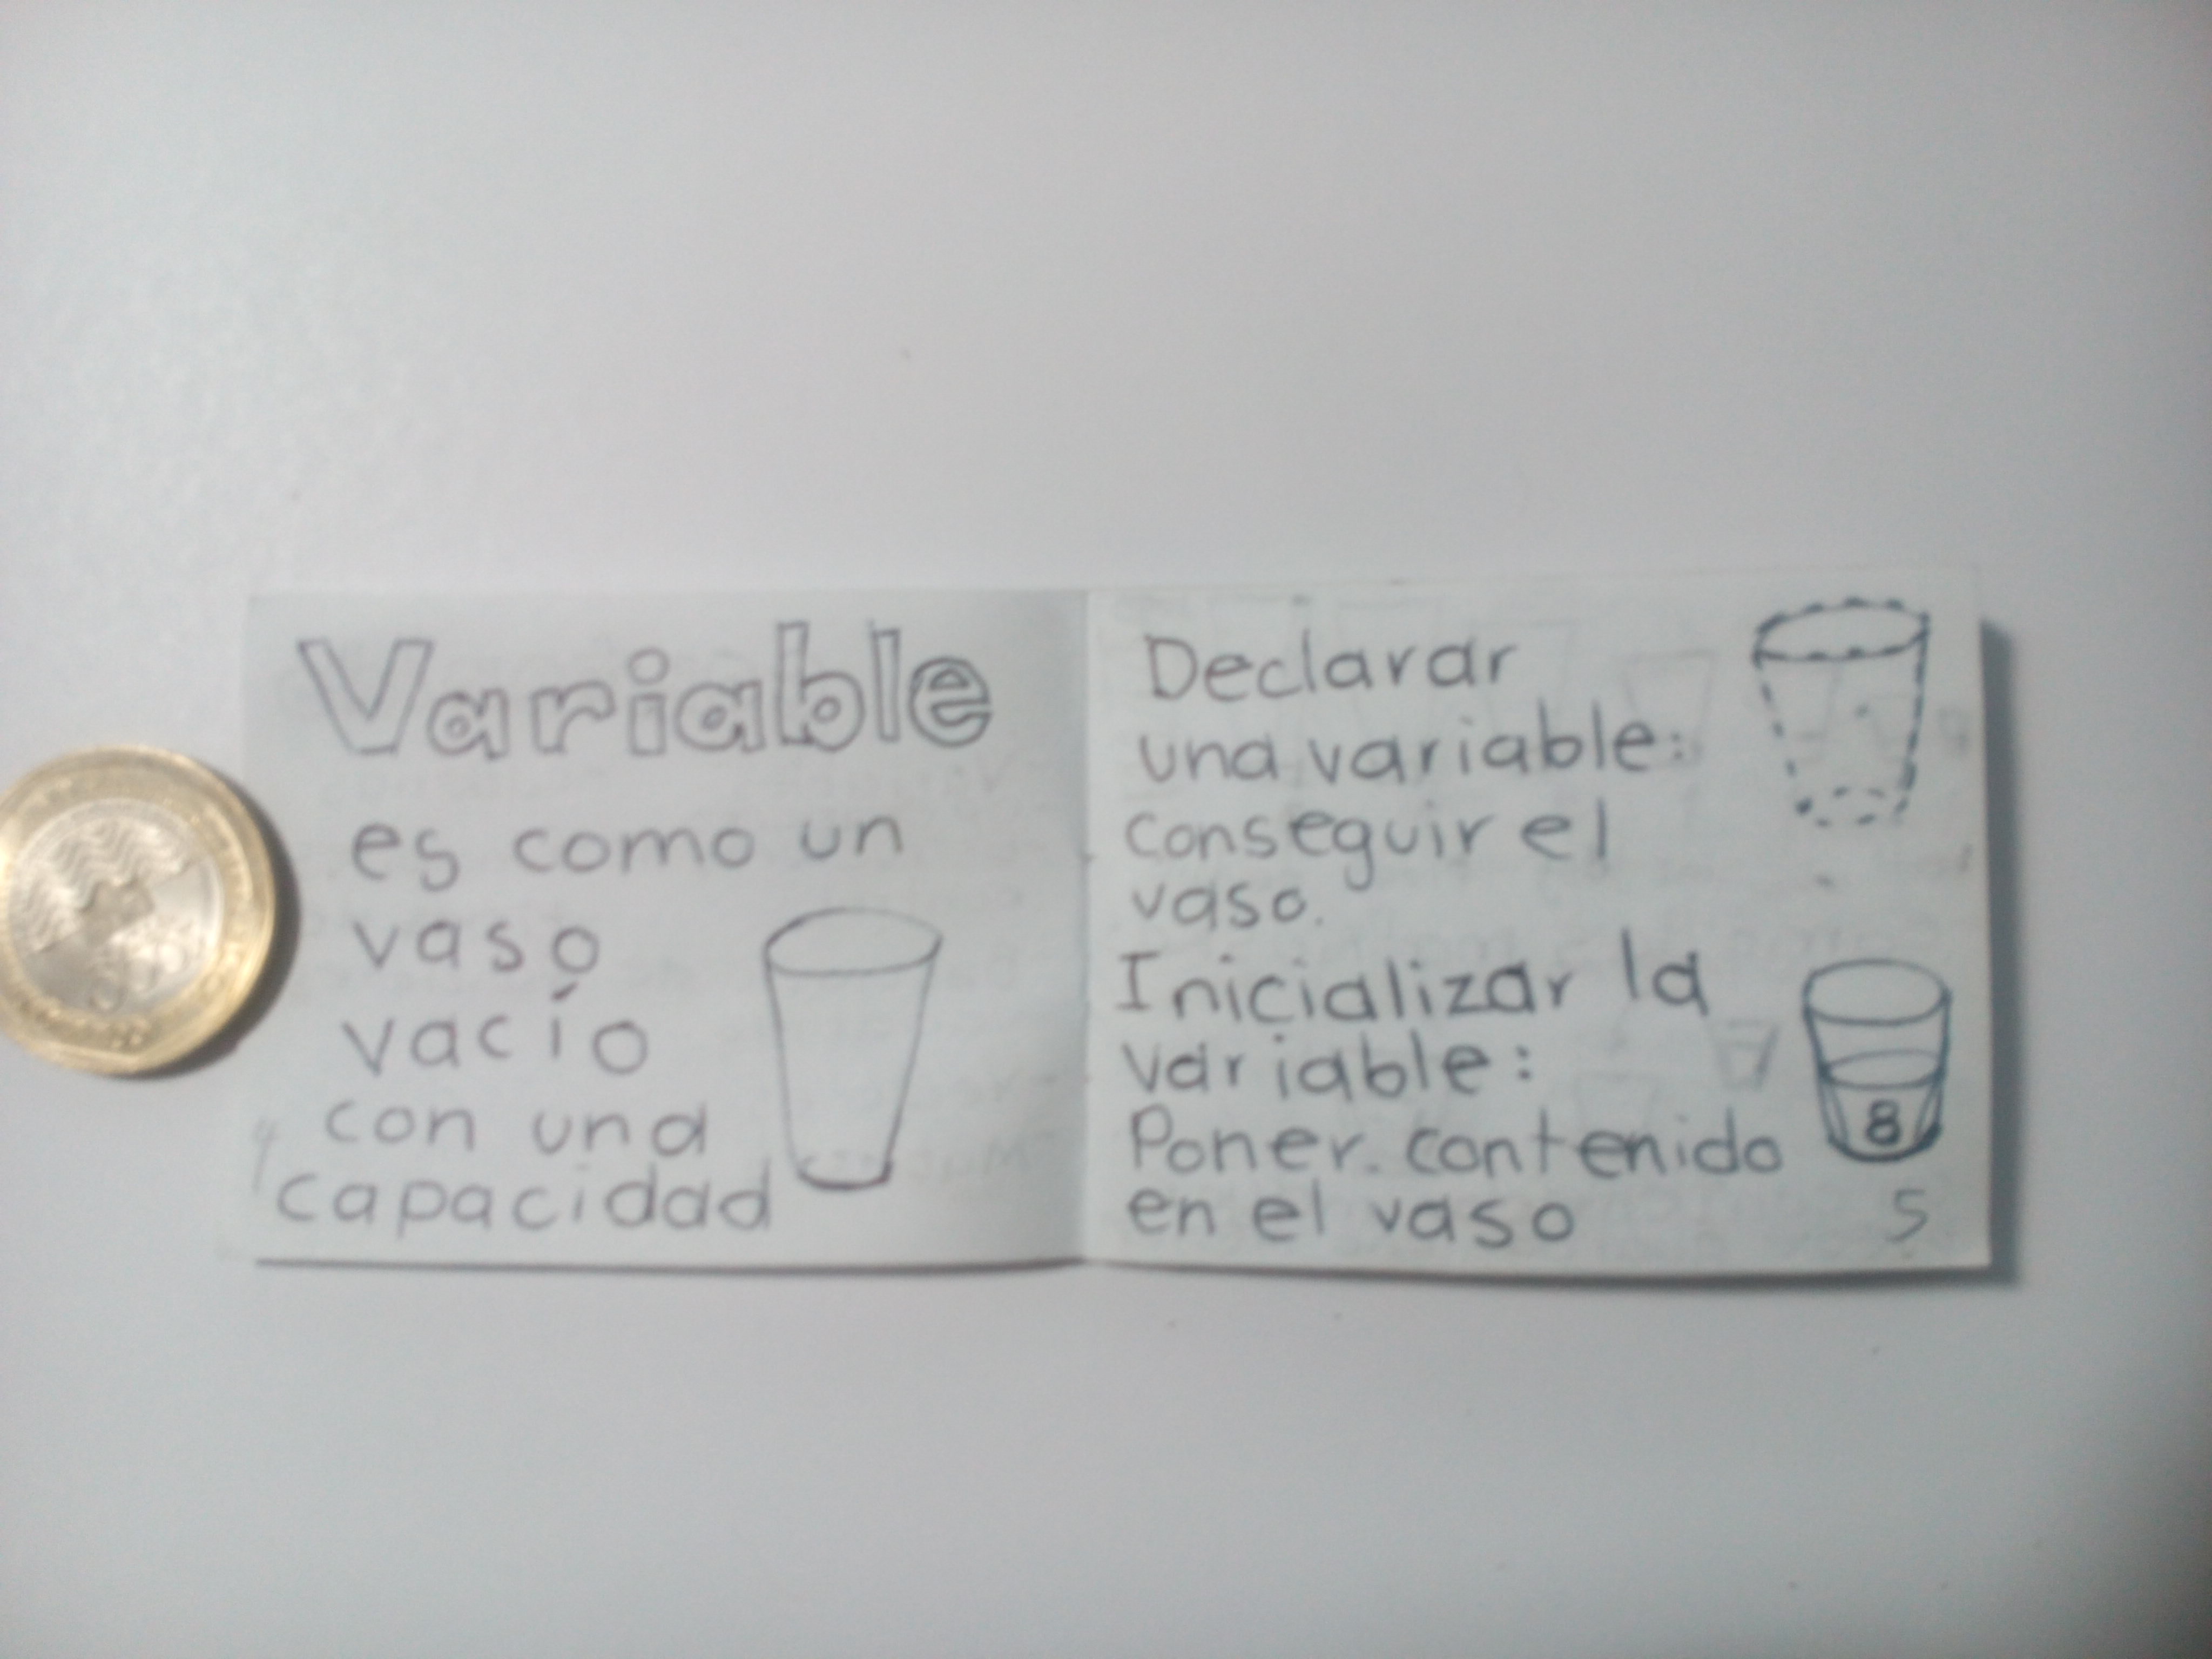 Variable
es como un
vaso
vacío
con una
capacidad
4
Declarar
una variable:
conseguir el
vaso.
Inicializar la
variable:
Poner contenido
en el vaso
8
5